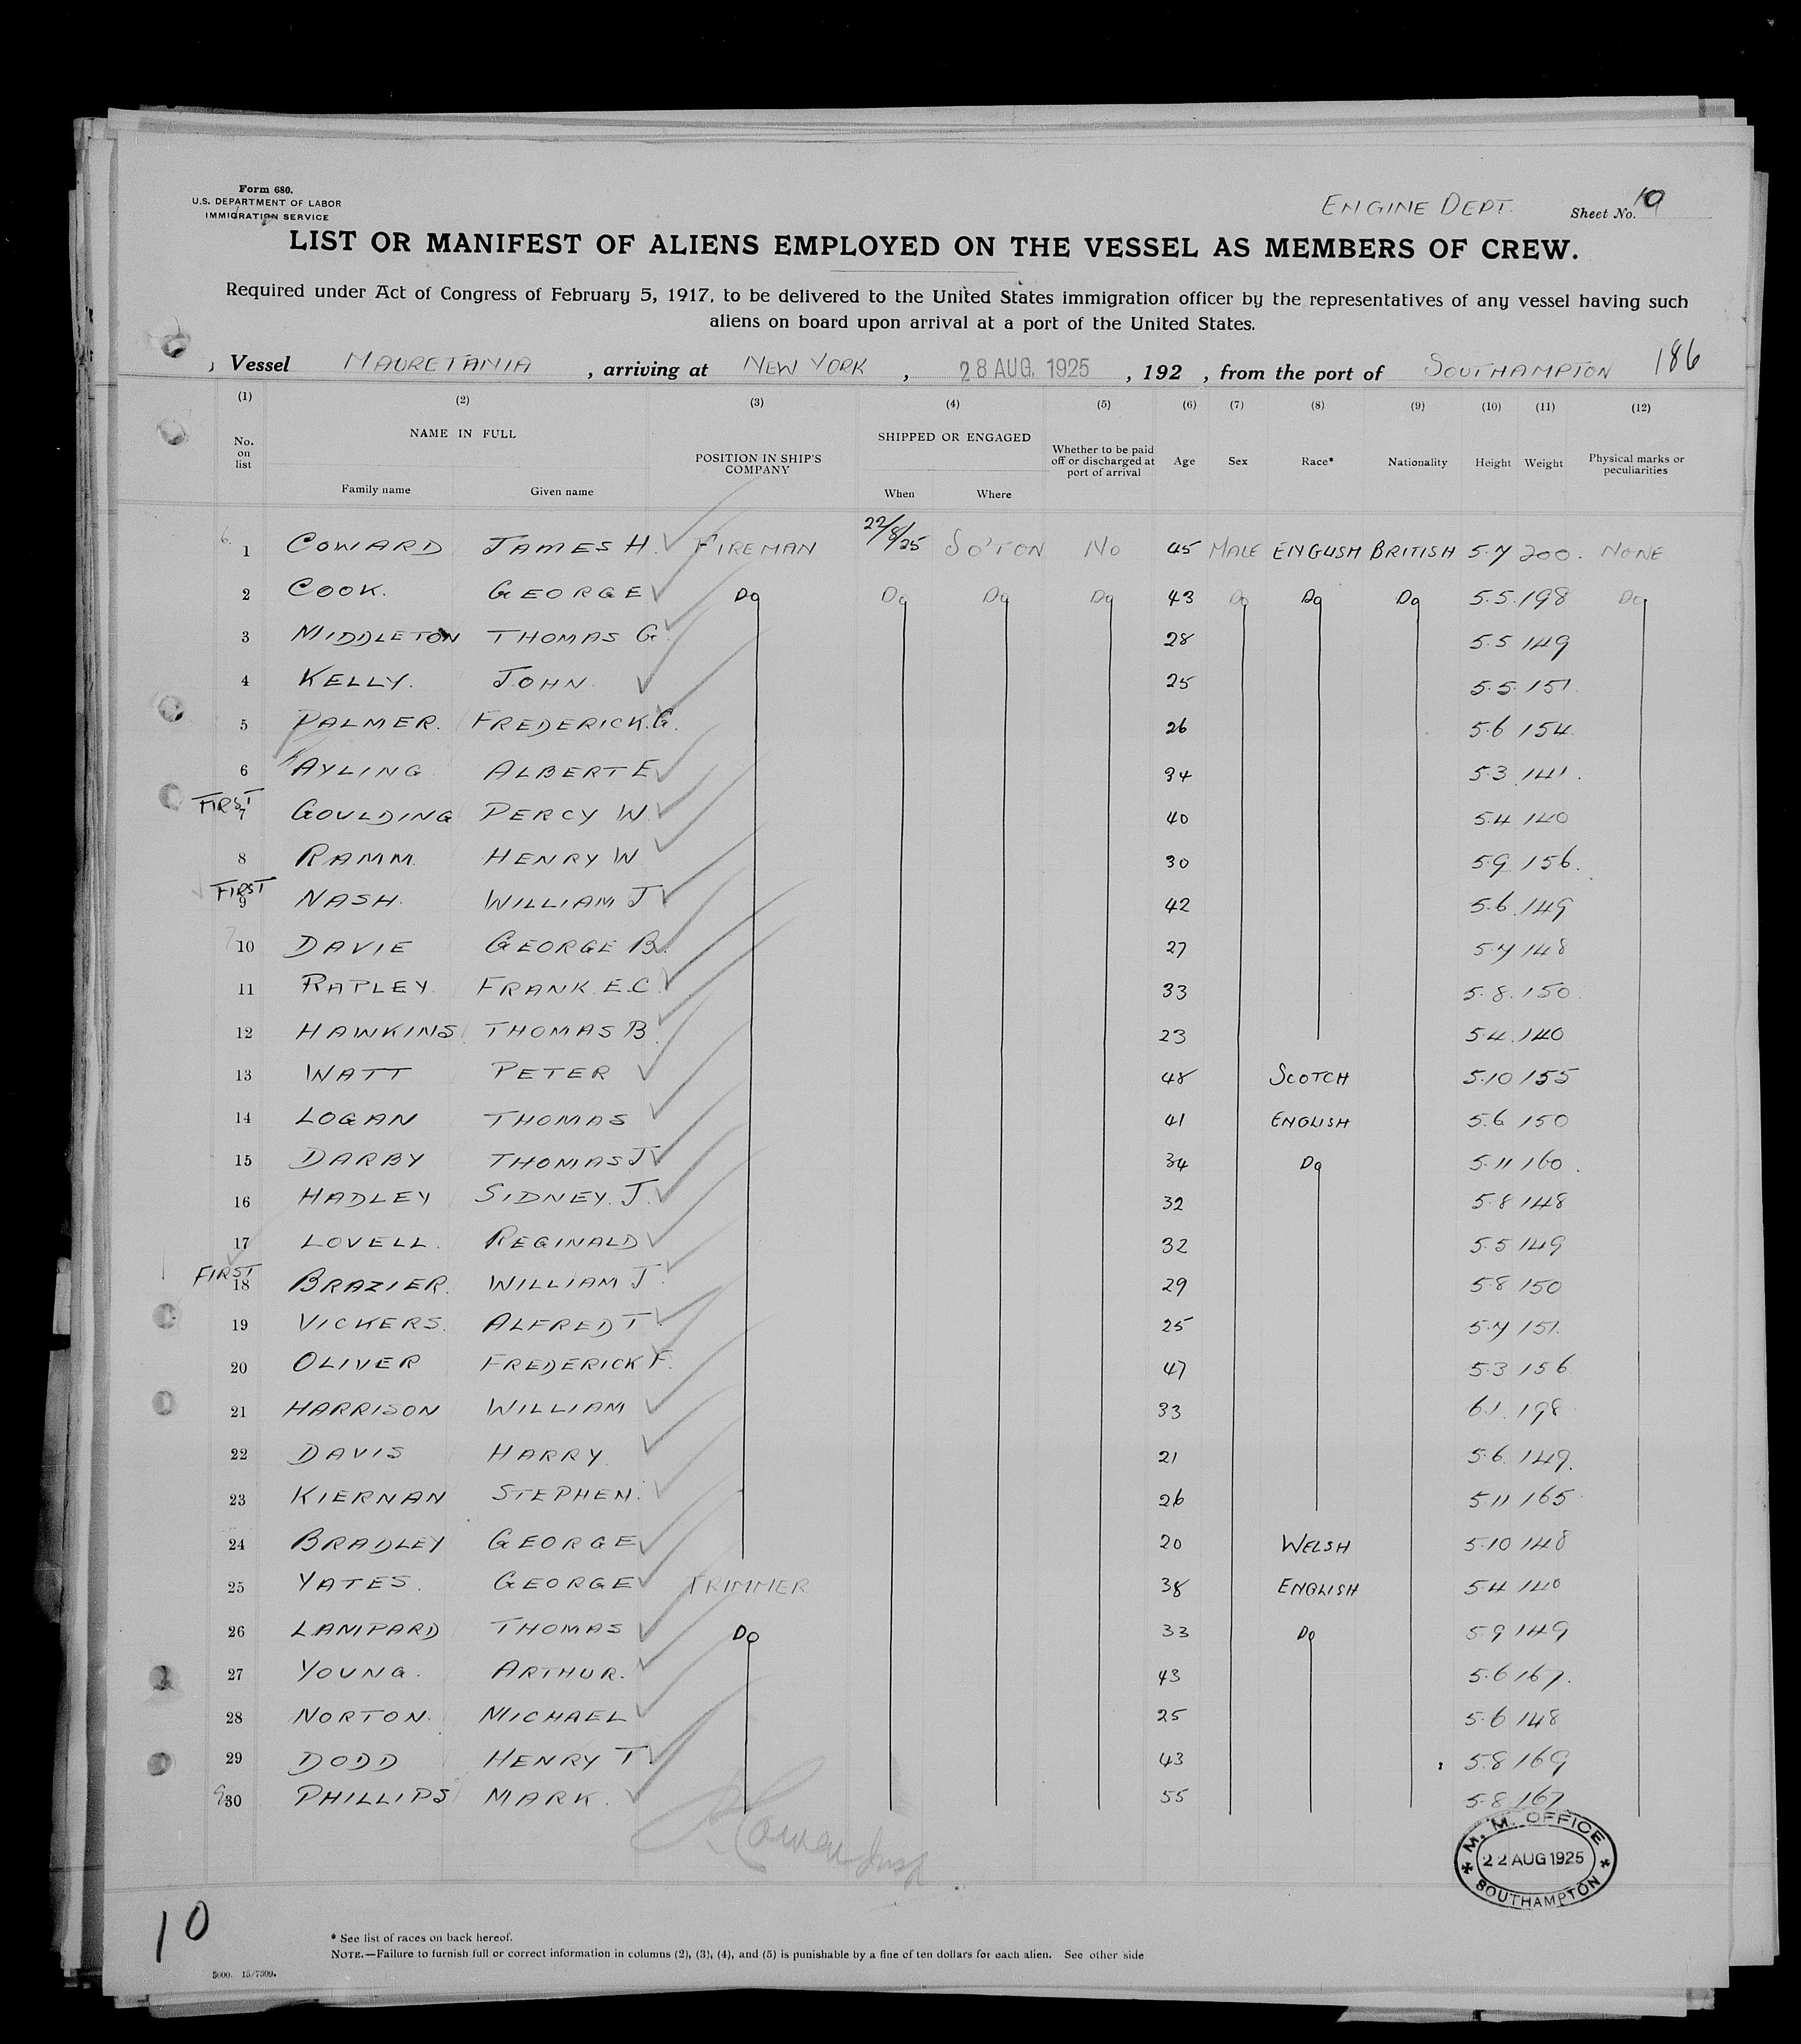 Form 680.
U.S. DEPARTMENT OF LABOR
IMMIGRATION SERVICE
ENGINE DEPT. Sheet No. 10
LIST OR MANIFEST OF ALIENS EMPLOYED ON THE VESSEL AS MEMBERS OF CREW.
Required under Act of Congress of February 5, 1917, to be delivered to the United States immigration officer by the representatives of any vessel having such
aliens on board upon arrival at a port of the United States.
Vessel MAURETANIA, arriving at NEW YORK, 28 AUG. 1925, 192 , from the port of SOUTHAMPTON 186
(1) (2) (3) (4) (5) (6) (7) (8) (9) (10) (11) (12)
No. on list NAME IN FULL Family name Given name POSITION IN SHIP'S COMPANY SHIPPED OR ENGAGED When Where Whether to be paid off or discharged at port of arrival Age Sex Race* Nationality Height Weight Physical marks or peculiarities
1 COWARD JAMES H. FIREMAN 22/8/25 SO'TON NO 45 MALE ENGLISH BRITISH 5.7 200. NONE
2 COOK. GEORGE Do Do Do Do 43 Do Do Do 5.5. 198 Do
3 MIDDLETON THOMAS G. 28 5.5 149
4 KELLY. JOHN. 25 5.5. 151.
5 PALMER. FREDERICK.G. 26 5.6 154.
6 AYLING ALBERT E 34 5.3. 141.
FIRST 7 GOULDING PERCY W. 40 5.4 140
8 RAMM. HENRY W 30 5.9 156.
FIRST 9 NASH. WILLIAM J 42 5.6. 149
10 DAVIE GEORGE B. 27 5.7 148
11 RAPLEY. FRANK.E.C. 33 5.8. 150.
12 HAWKINS THOMAS B. 23 5.4. 140
13 WATT PETER 48 SCOTCH 5.10 155
14 LOGAN THOMAS 41 ENGLISH 5.6 150
15 DARBY THOMAS J. 34 Do 5.11 160.
16 HADLEY SIDNEY. J. 32 5.8 148
17 LOVELL. REGINALD 32 5.5 149
FIRST 18 BRAZIER. WILLIAM J. 29 5.8 150
19 VICKERS. ALFRED T. 25 5.7 151.
20 OLIVER FREDERICK F. 47 5.3 156
21 HARRISON WILLIAM 33 6.1. 198
22 DAVIS HARRY. 21 5.6. 149.
23 KIERNAN STEPHEN. 26 5.11 165
24 BRADLEY GEORGE 20 WELSH 5.10 148
25 YATES. GEORGE TRIMMER 38 ENGLISH 5.4 140
26 LAMPARD THOMAS Do 33 Do 5.9 149
27 YOUNG. ARTHUR. 43 5.6 167.
28 NORTON. MICHAEL 25 5.6 148
29 DODD HENRY T. 43 5.8 169
30 PHILLIPS MARK. 55 5.8 167
M. M. OFFICE
22 AUG 1925
SOUTHAMPTON
10
* See list of races on back hereof.
NOTE.—Failure to furnish full or correct information in columns (2), (3), (4), and (5) is punishable by a fine of ten dollars for each alien. See other side
5000. 15/7309.